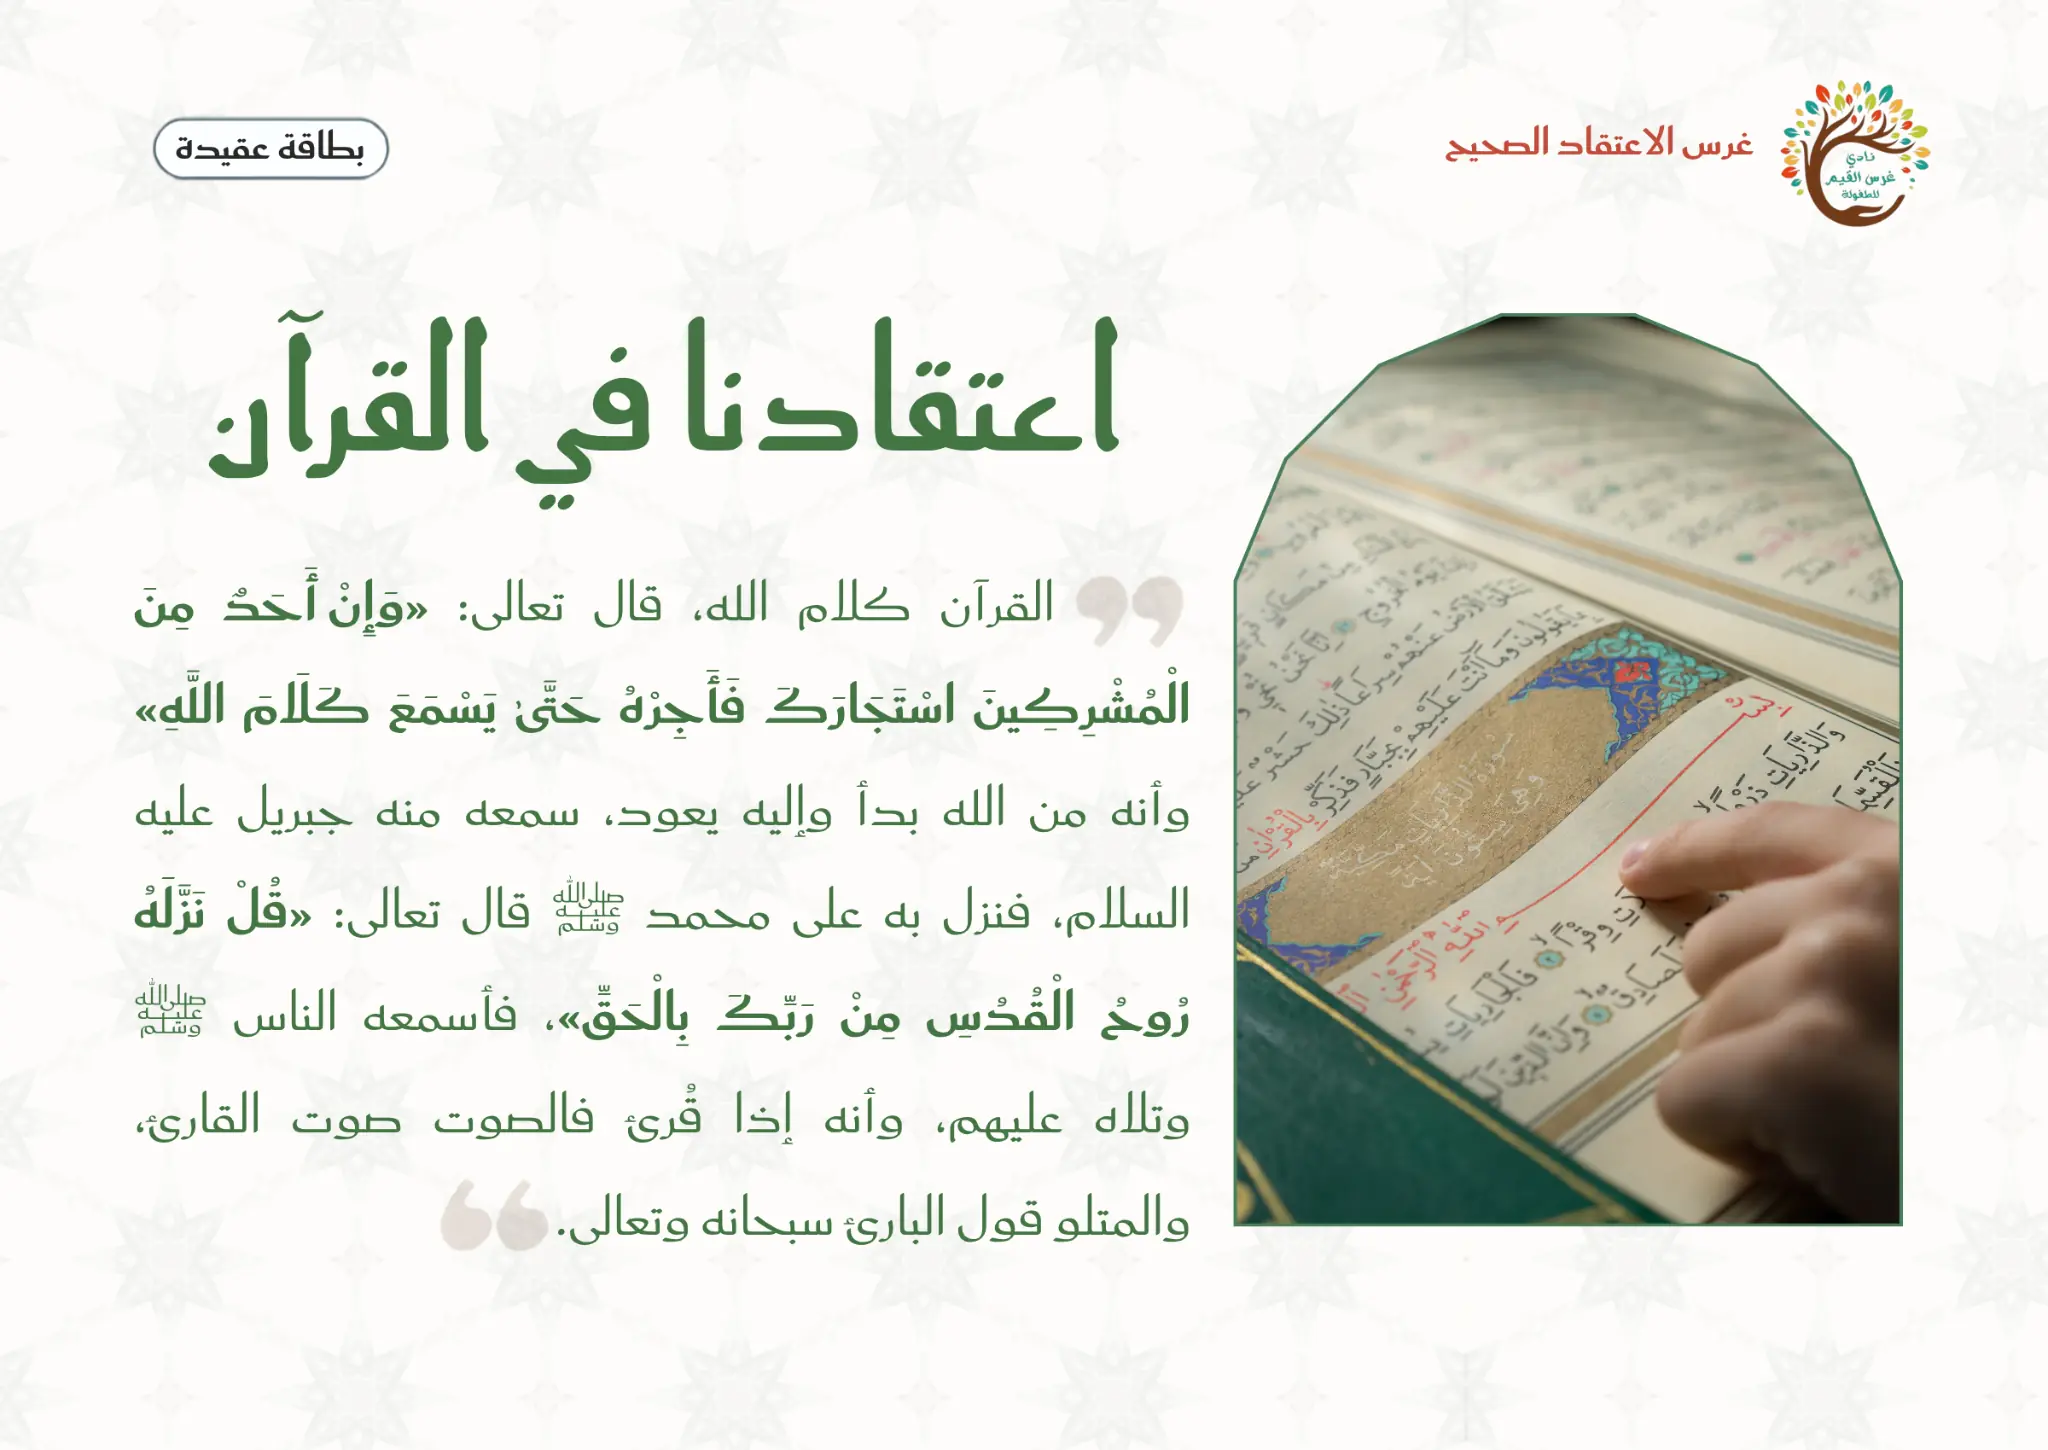 نادي
غرس القيم
للطفولة
غرس الاعتقاد الصحيح
بطاقة عقيدة
اعتقادنا في القرآن
القرآن كلام الله، قال تعالى: «وَإِنْ أَحَدٌ مِنَ
الْمُشْرِكِينَ اسْتَجَارَكَ فَأَجِرْهُ حَتَّىٰ يَسْمَعَ كَلَامَ اللَّهِ»
وأنه من الله بدأ وإليه يعود، سمعه منه جبريل عليه
السلام، فنزل به على محمد ﷺ قال تعالى: «قُلْ نَزَّلَهُ
رُوحُ الْقُدُسِ مِنْ رَبِّكَ بِالْحَقِّ»، فأسمعه الناس ﷺ
وتلاه عليهم، وأنه إذا قُرئ فالصوت صوت القارئ،
والمتلو قول البارئ سبحانه وتعالى.